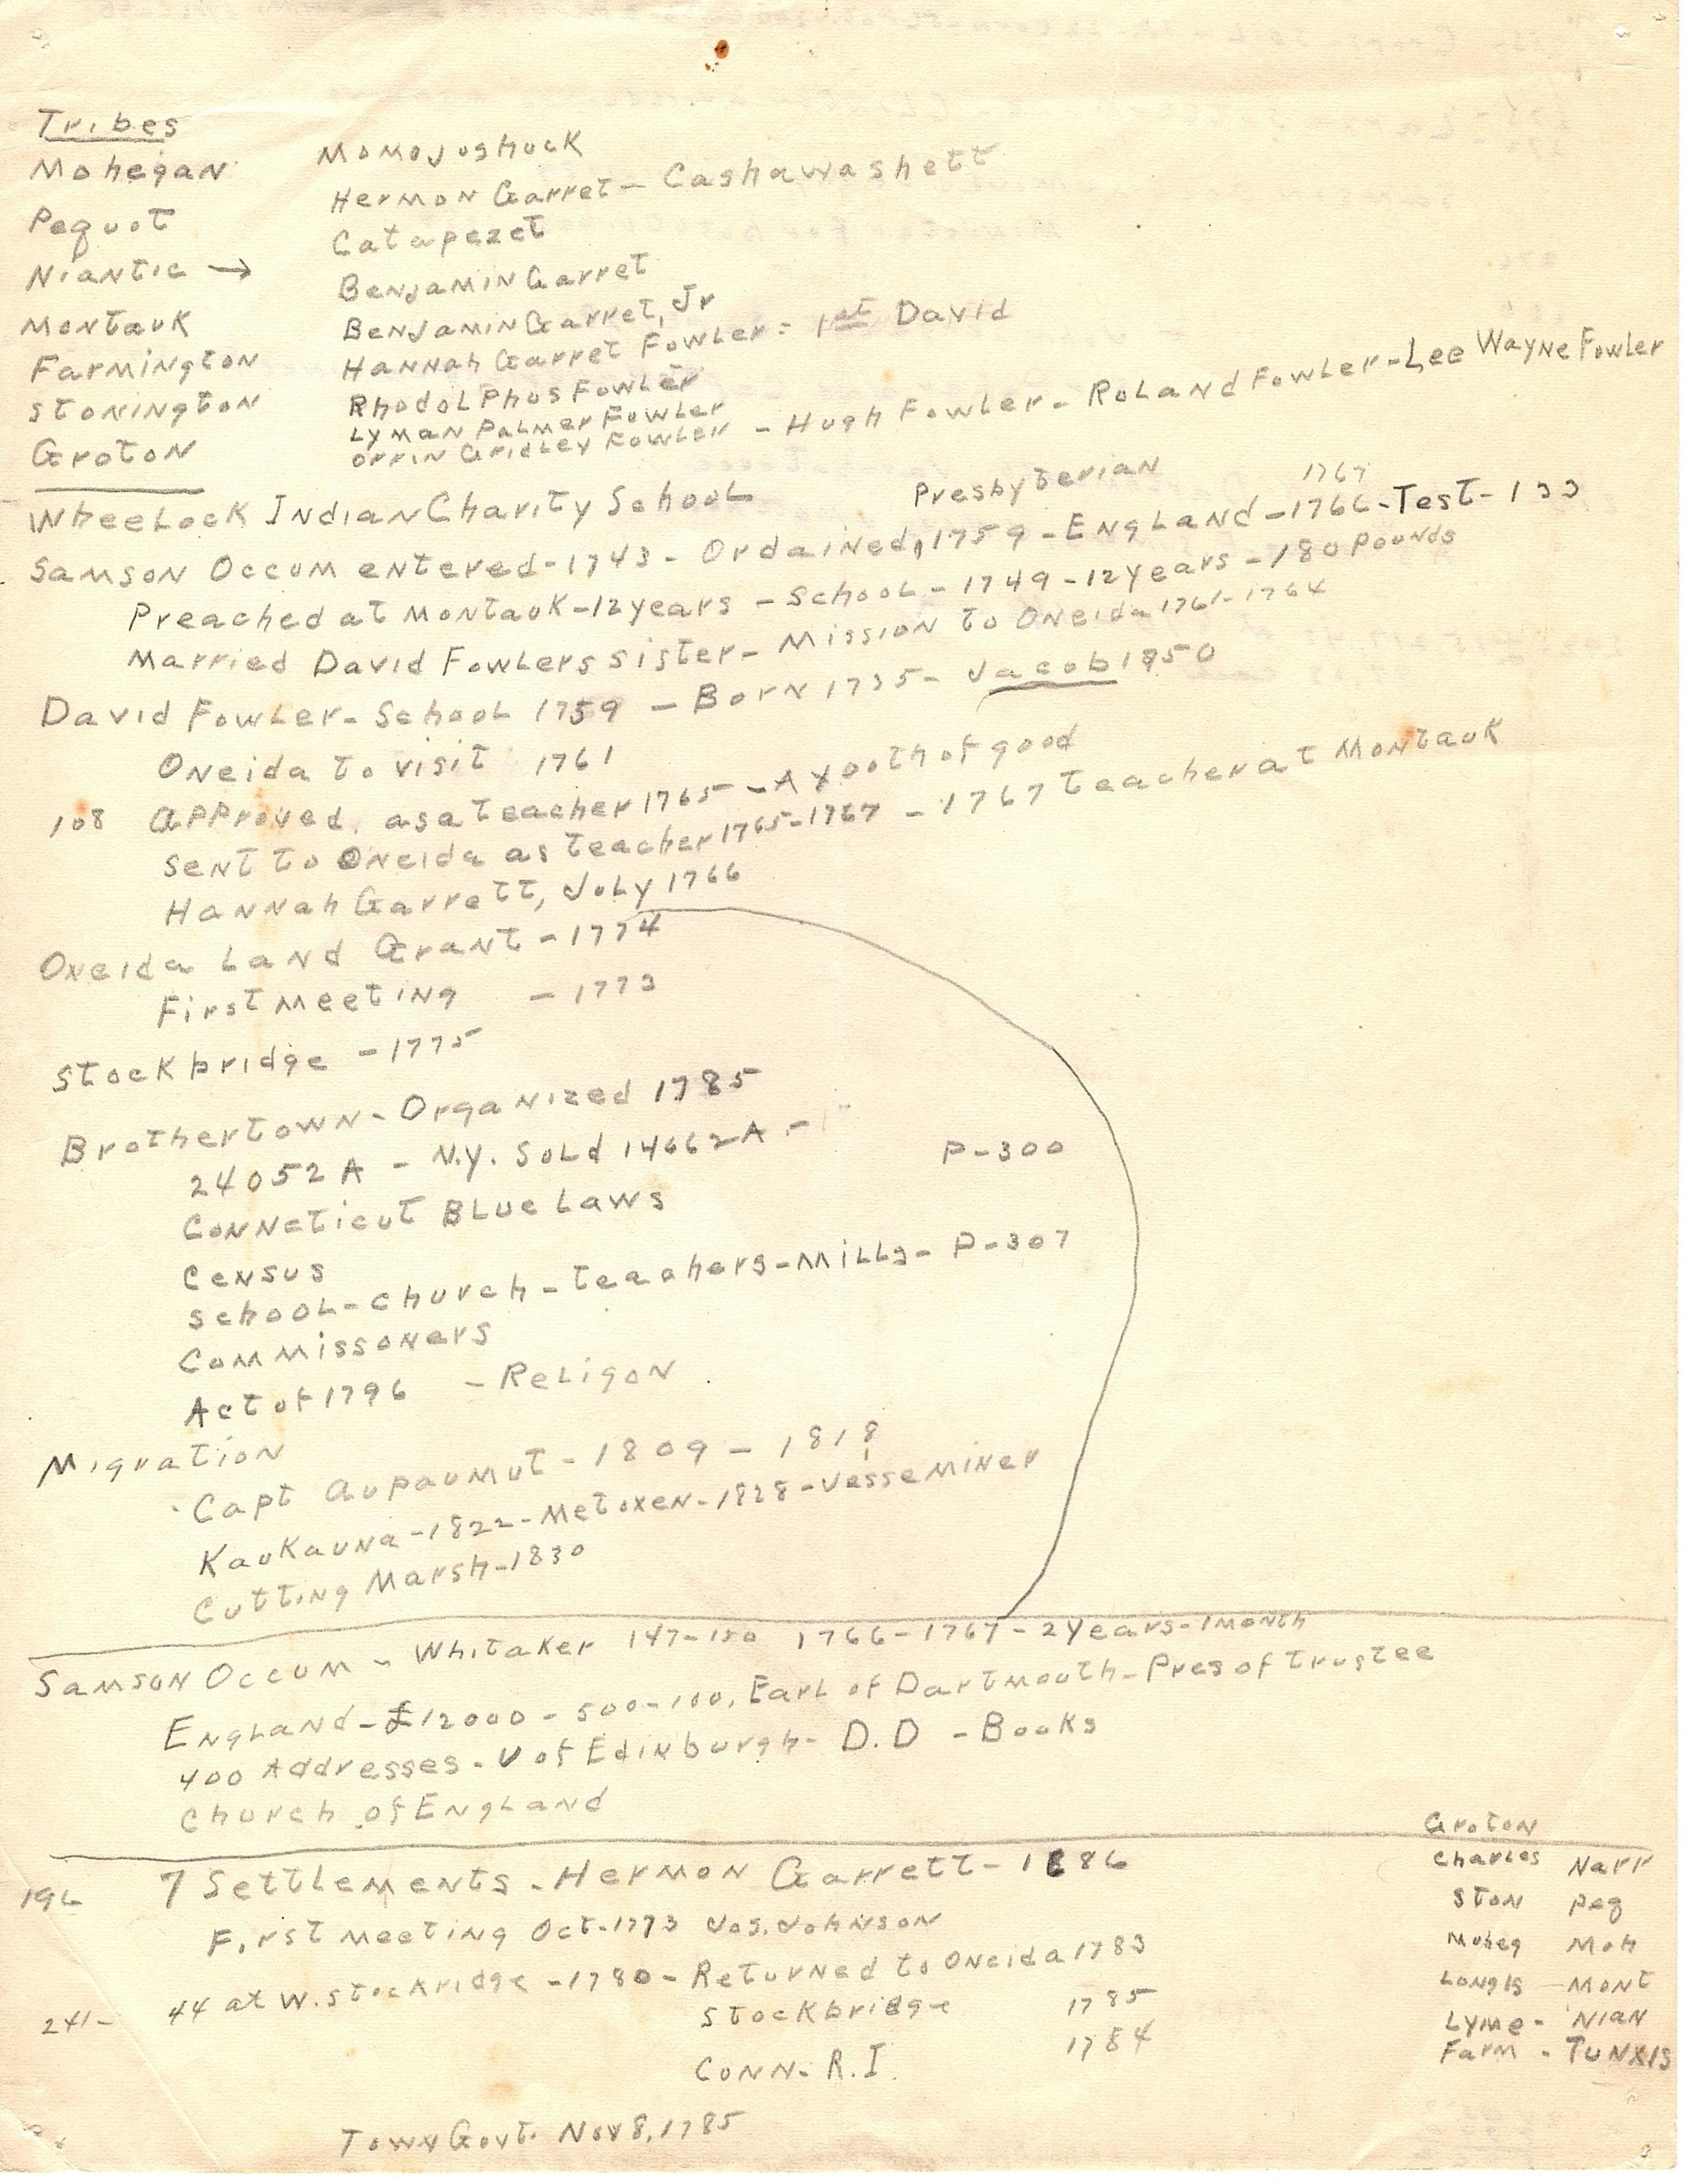 Tribes
Mohegan
Pequot
Niantic →
Montauk
Farmington
Stonington
Groton
Momojoshuck
Hermon Garret - Cashawashett
Catapezet
Benjamin Garret
Benjamin Garret, Jr
Hannah Garret Fowler = 1st David
Rhodolphos Fowler
Lyman Palmer Fowler
Orrin Gridley Fowler - Hugh Fowler - Roland Fowler - Lee Wayne Fowler
Wheelock Indian Charity School
Presbyterian 1767
Samson Occum entered - 1743 - Ordained, 1759 - England - 1766 - Test - 133
Preached at Montauk - 12 years - School - 1749 - 12 years - 180 pounds
Married David Fowlers sister - Mission to Oneida 1761 - 1764
David Fowler - School 1759 - Born 1735 - Jacob 1750
Oneida to visit 1761
108 Approved as a teacher 1765 - A youth of good
Sent to Oneida as teacher 1765-1767 - 1767 teacher at Montauk
Hannah Garrett, July 1766
Oneida Land Grant - 1774
First Meeting - 1773
Stockbridge - 1775
Brothertown - Organized 1785
24052 A - N.Y. Sold 14662 A -
P-300
Conneticut Blue Laws
Census
School - church - teachers - mills - P-307
Commissoners
Act of 1796 - Religon
Migration
Capt Aupaumut - 1809 - 1818
Kaukauna - 1822 - Metoxen - 1828 - Jesse Miner
Cutting Marsh - 1830
Samson Occum - Whitaker 147-150 1766-1767 - 2 years - 1 month
England - £12000 - 500-100, Earl of Dartmouth - Pres of trustee
400 Addresses - U of Edinburgh - D.D - Books
Church of England
196 7 Settlements - Hermon Garrett - 1686
First meeting Oct-1773 Jos. Johnson
44 at W. Stockridge - 1780 - Returned to Oneida 1783
241- Stockbridge 1785
Conn - R.I. 1784
Town Govt. Nov 8, 1785
Groton
Charles Narr
Ston Peq
Moheg Moh
Long Is - Mont
Lyme - Nian
Farm - Tunxis